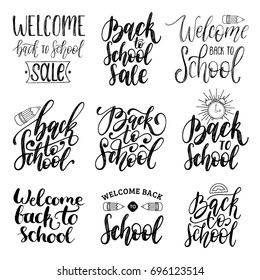 WELCOME
back to school
SALE
Back
to
School
Sale
Welcome
BACK TO
School
back
to
School
Back
to
School
Back
to
School
Welcome
back to
school
WELCOME BACK
TO
School
Back
to
School
shutterstock.com · 696123514